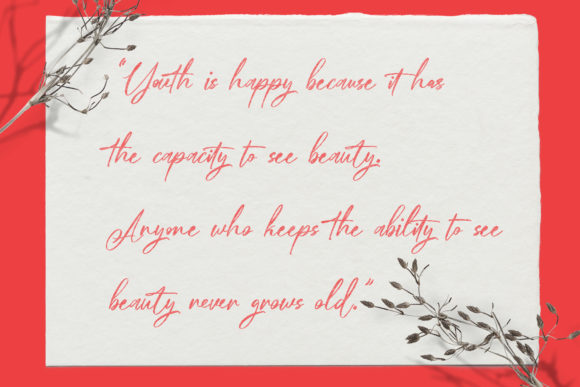 “Youth is happy because it has
the capacity to see beauty.
Anyone who keeps the ability to see
beauty never grows old.”